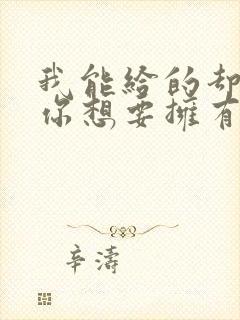 我能给的却
你想要拥有
辛濤